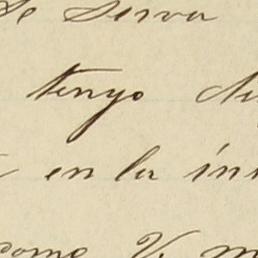 se serva
tengo
en la
como V. m